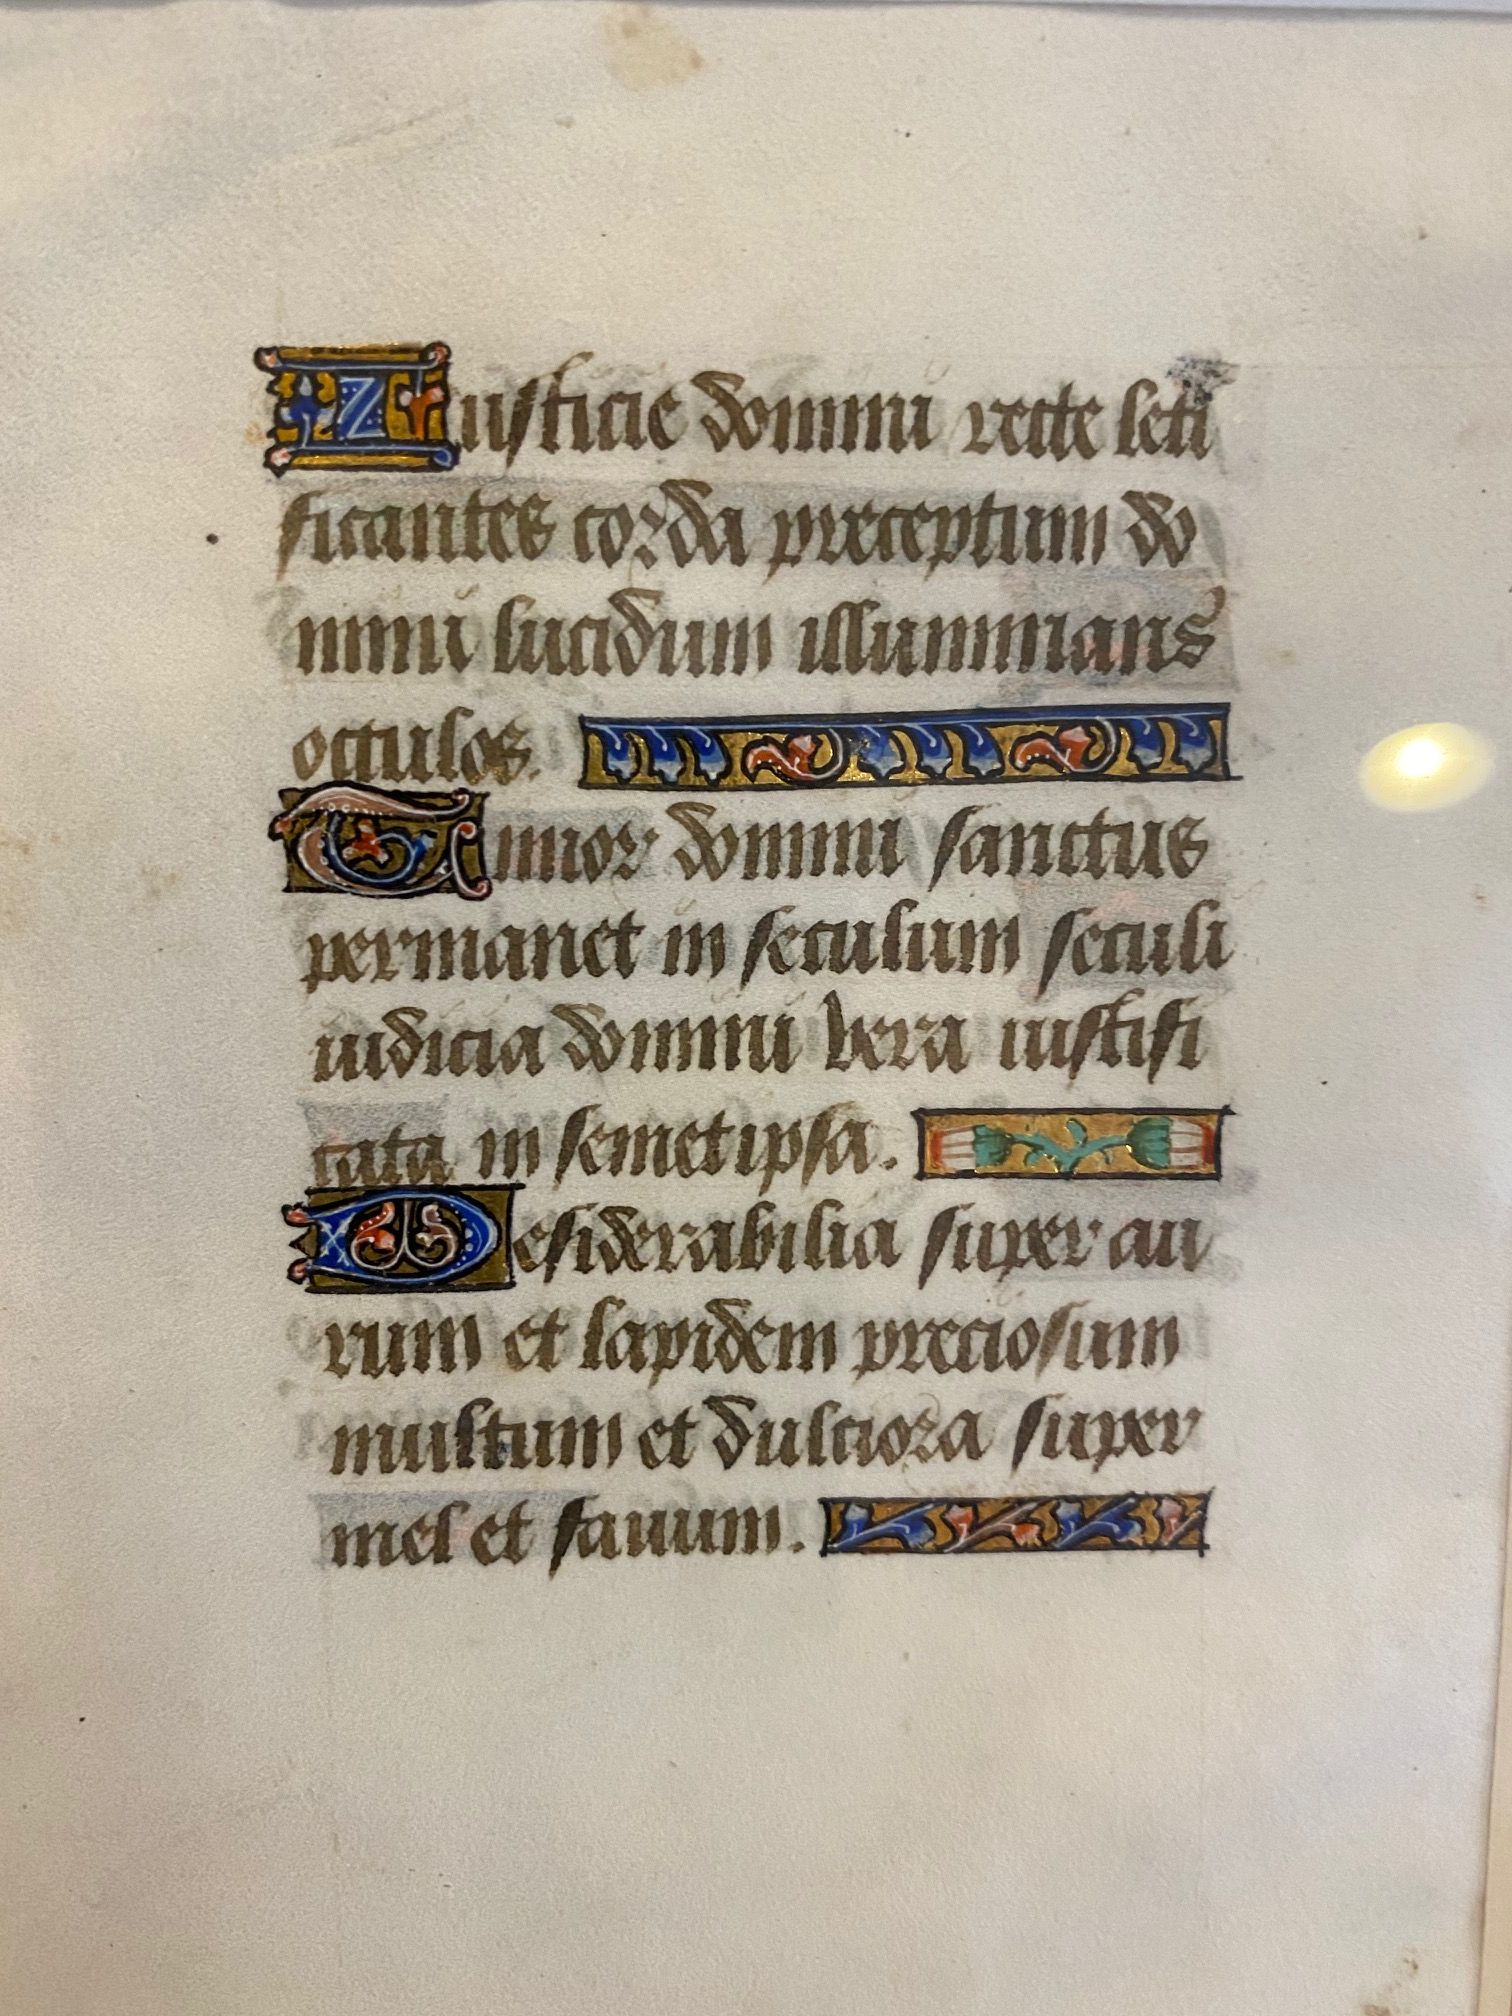 Iusticie domini recte leti
ficantes corda preceptum do
mini lucidum illuminans
occulos.
Timor domini sanctus
permanet in seculum seculi
iudicia domini vera iustifi
cata in semetipsa.
Desiderabilia super au
rum et lapidem preciosum
multum et dulciora super
mel et fauum.